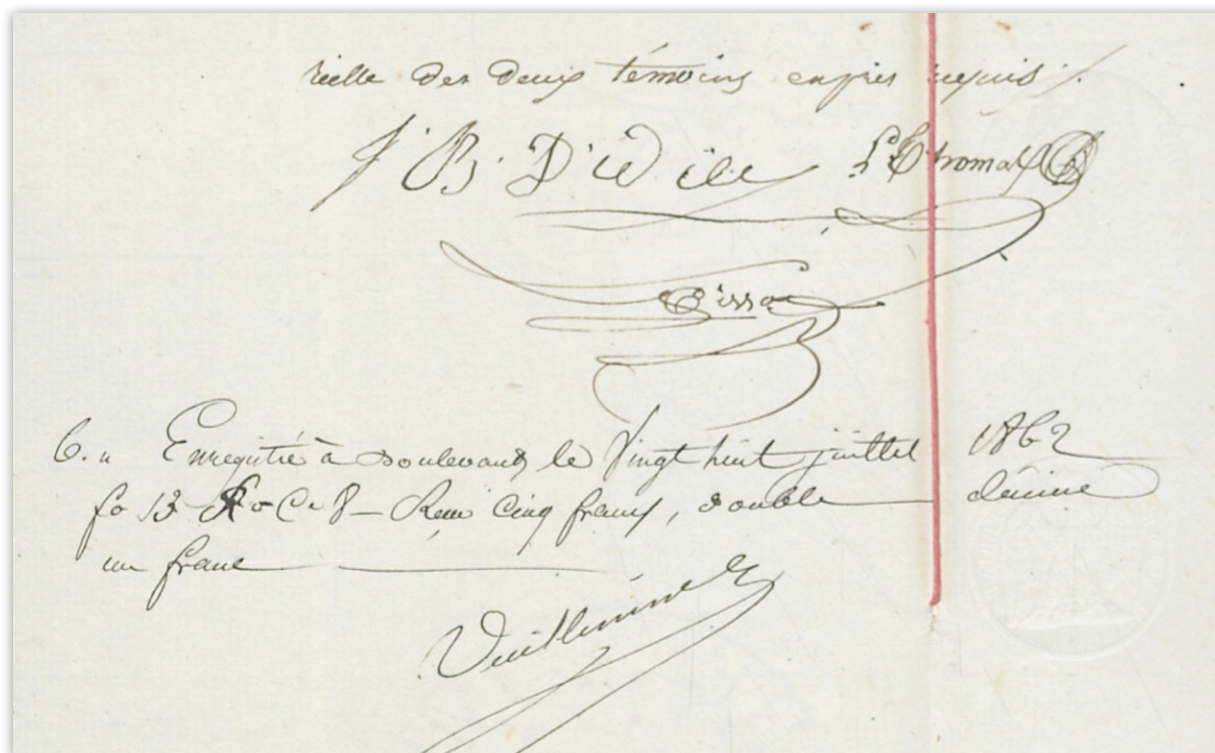 rielle des deux témoins exprès requis ·/.
J. B. Didier
Thomas
Pissot
6. " Enregistré à Doulevant le Vingt huit juillet 1862
fo 13 Ro C. 8 – Reçu Cinq francs, double décime
un franc
Vuillemin